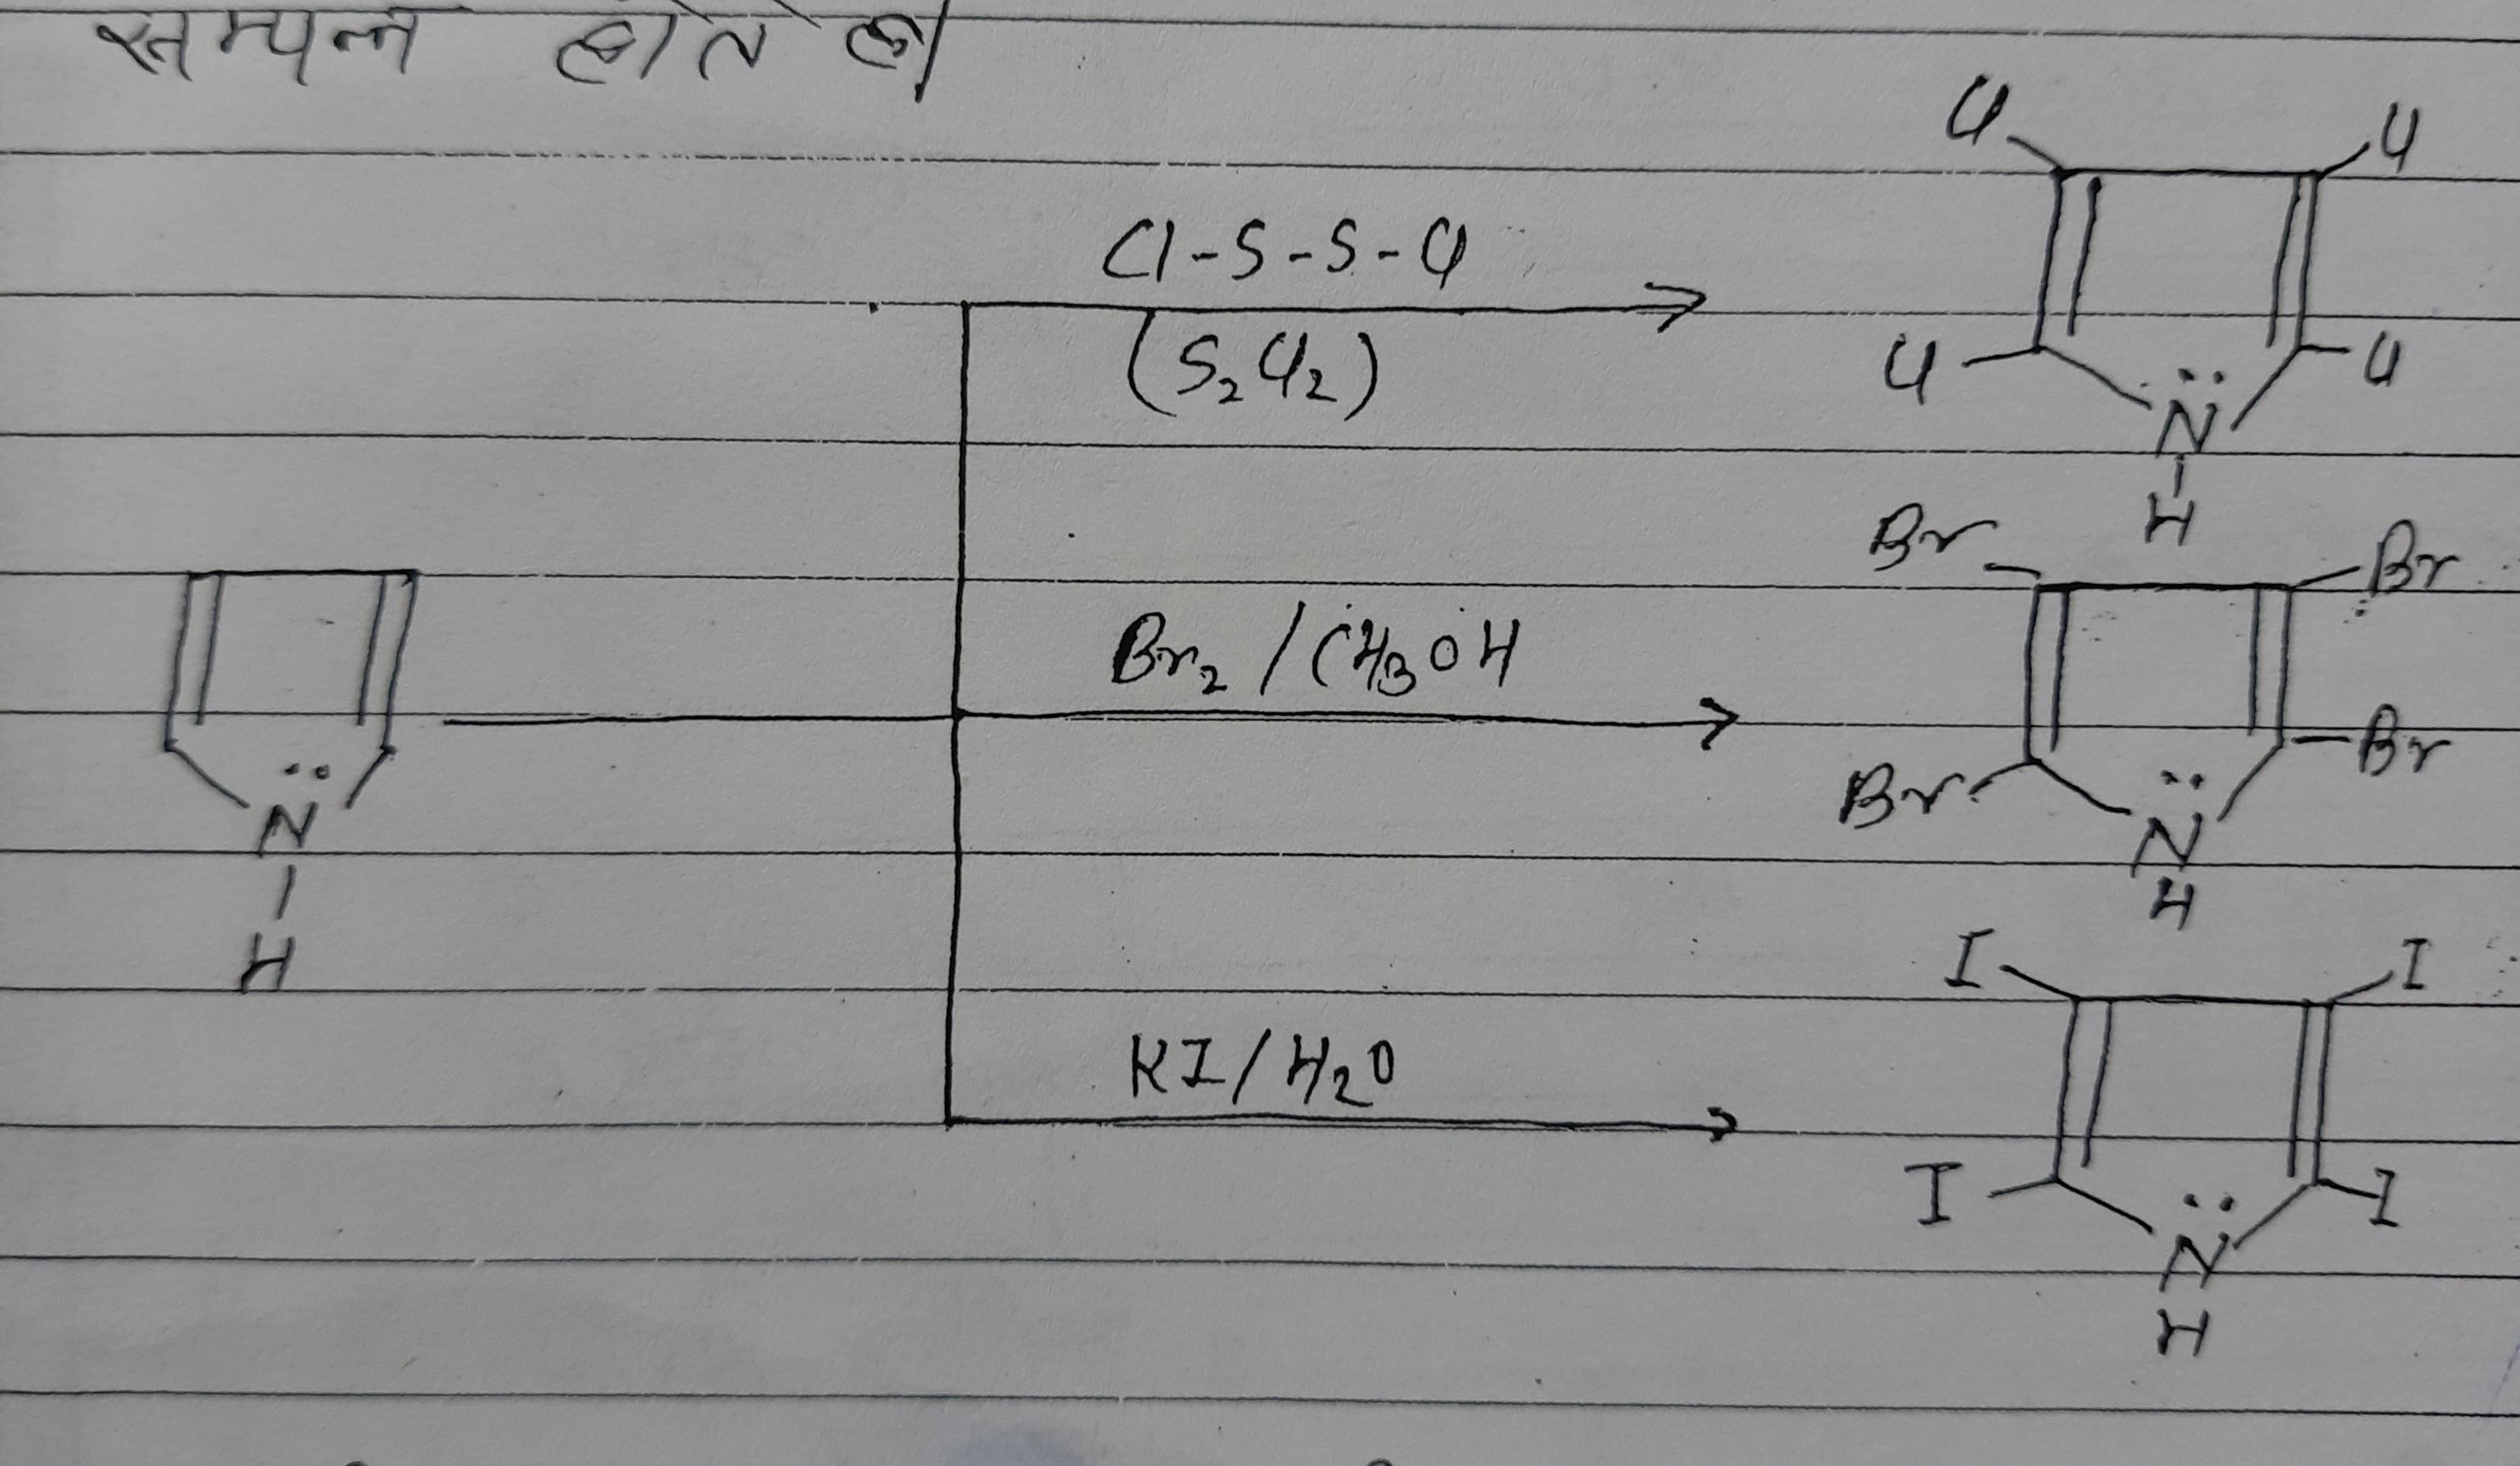 सम्पन्न होते है।
Cl-S-S-Cl
(S₂Cl₂)
Cl Cl
Cl Cl
N
H
Br₂ / CH₃OH
Br Br
Br Br
N
H
N
H
KI / H₂O
I I
I I
N
H